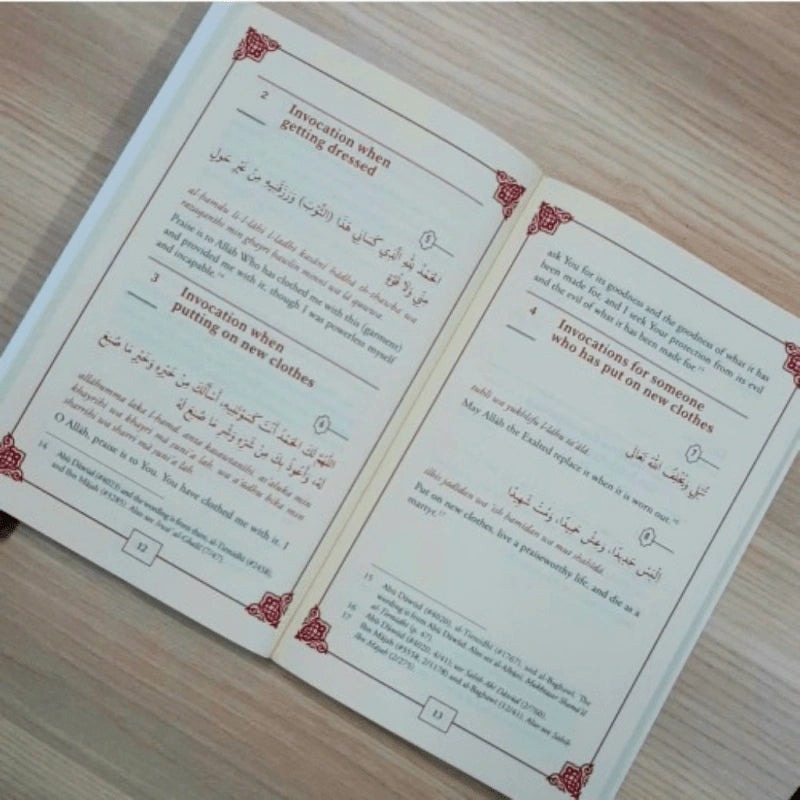 2
Invocation when
getting dressed
5
الحَمْدُ لِلَّهِ الَّذِي كَسَانِي هَذَا (الثَّوْبَ) وَرَزَقَنِيهِ مِنْ غَيْرِ حَوْلٍ
مِنِّي وَلَا قُوَّةٍ
al-ḥamdu li-l-lāhi l-ladhī kasānī hādha th-thawba wa
razaqanīhi min ghayri ḥawlin minnī wa lā quwwa.
Praise is to Allāh Who has clothed me with this (garment)
and provided me with it, though I was powerless myself
and incapable.
3
Invocation when
putting on new clothes
6
اللَّهُمَّ لَكَ الحَمْدُ أَنْتَ كَسَوْتَنِيهِ، أَسْأَلُكَ مِنْ خَيْرِهِ وَخَيْرِ مَا صُنِعَ
لَهُ، وَأَعُوذُ بِكَ مِنْ شَرِّهِ وَشَرِّ مَا صُنِعَ لَهُ
allāhumma laka l-ḥamd, anta kasawtanīhi, as'aluka min
khayrihi wa khayri mā ṣuni'a lah, wa a'ūdhu bika min
sharrihi wa sharri mā ṣuni'a lah.
O Allāh, praise is to You. You have clothed me with it. I
14 Abū Dāwūd (#4023) and the wording is from there, al-Tirmidhī (#3458),
and Ibn Mājah (#3285). Also see Irwā' al-Ghalīl (7/47).
12
ask You for its goodness and the goodness of what it has
been made for, and I seek Your protection from its evil
and the evil of what it has been made for.15
4
Invocations for someone
who has put on new clothes
7
تُبْلِي وَيُخْلِفُ اللَّهُ تَعَالَى
tublī wa yukhlifu l-lāhu ta'ālā.
May Allāh the Exalted replace it when it is worn out.16
8
الْبَسْ جَدِيدًا، وَعِشْ حَمِيدًا، وَمُتْ شَهِيدًا
ilbis jadīdan wa 'ish ḥamīdan wa mut shahīdā.
Put on new clothes, live a praiseworthy life, and die as a
martyr.17
15 Abū Dāwūd (#4020), al-Tirmidhī (#1767), and al-Baghawī. The
wording is from Abū Dāwūd. Also see al-Albānī, Mukhtaṣar Shamā'il
al-Tirmidhī (p. 47).
16 Abū Dāwūd (#4020, 4/41); see Ṣaḥīḥ Abī Dāwūd (2/760).
17 Ibn Mājah (#3558, 2/1178) and al-Baghawī (12/41). Also see Ṣaḥīḥ
Ibn Mājah (2/275).
13